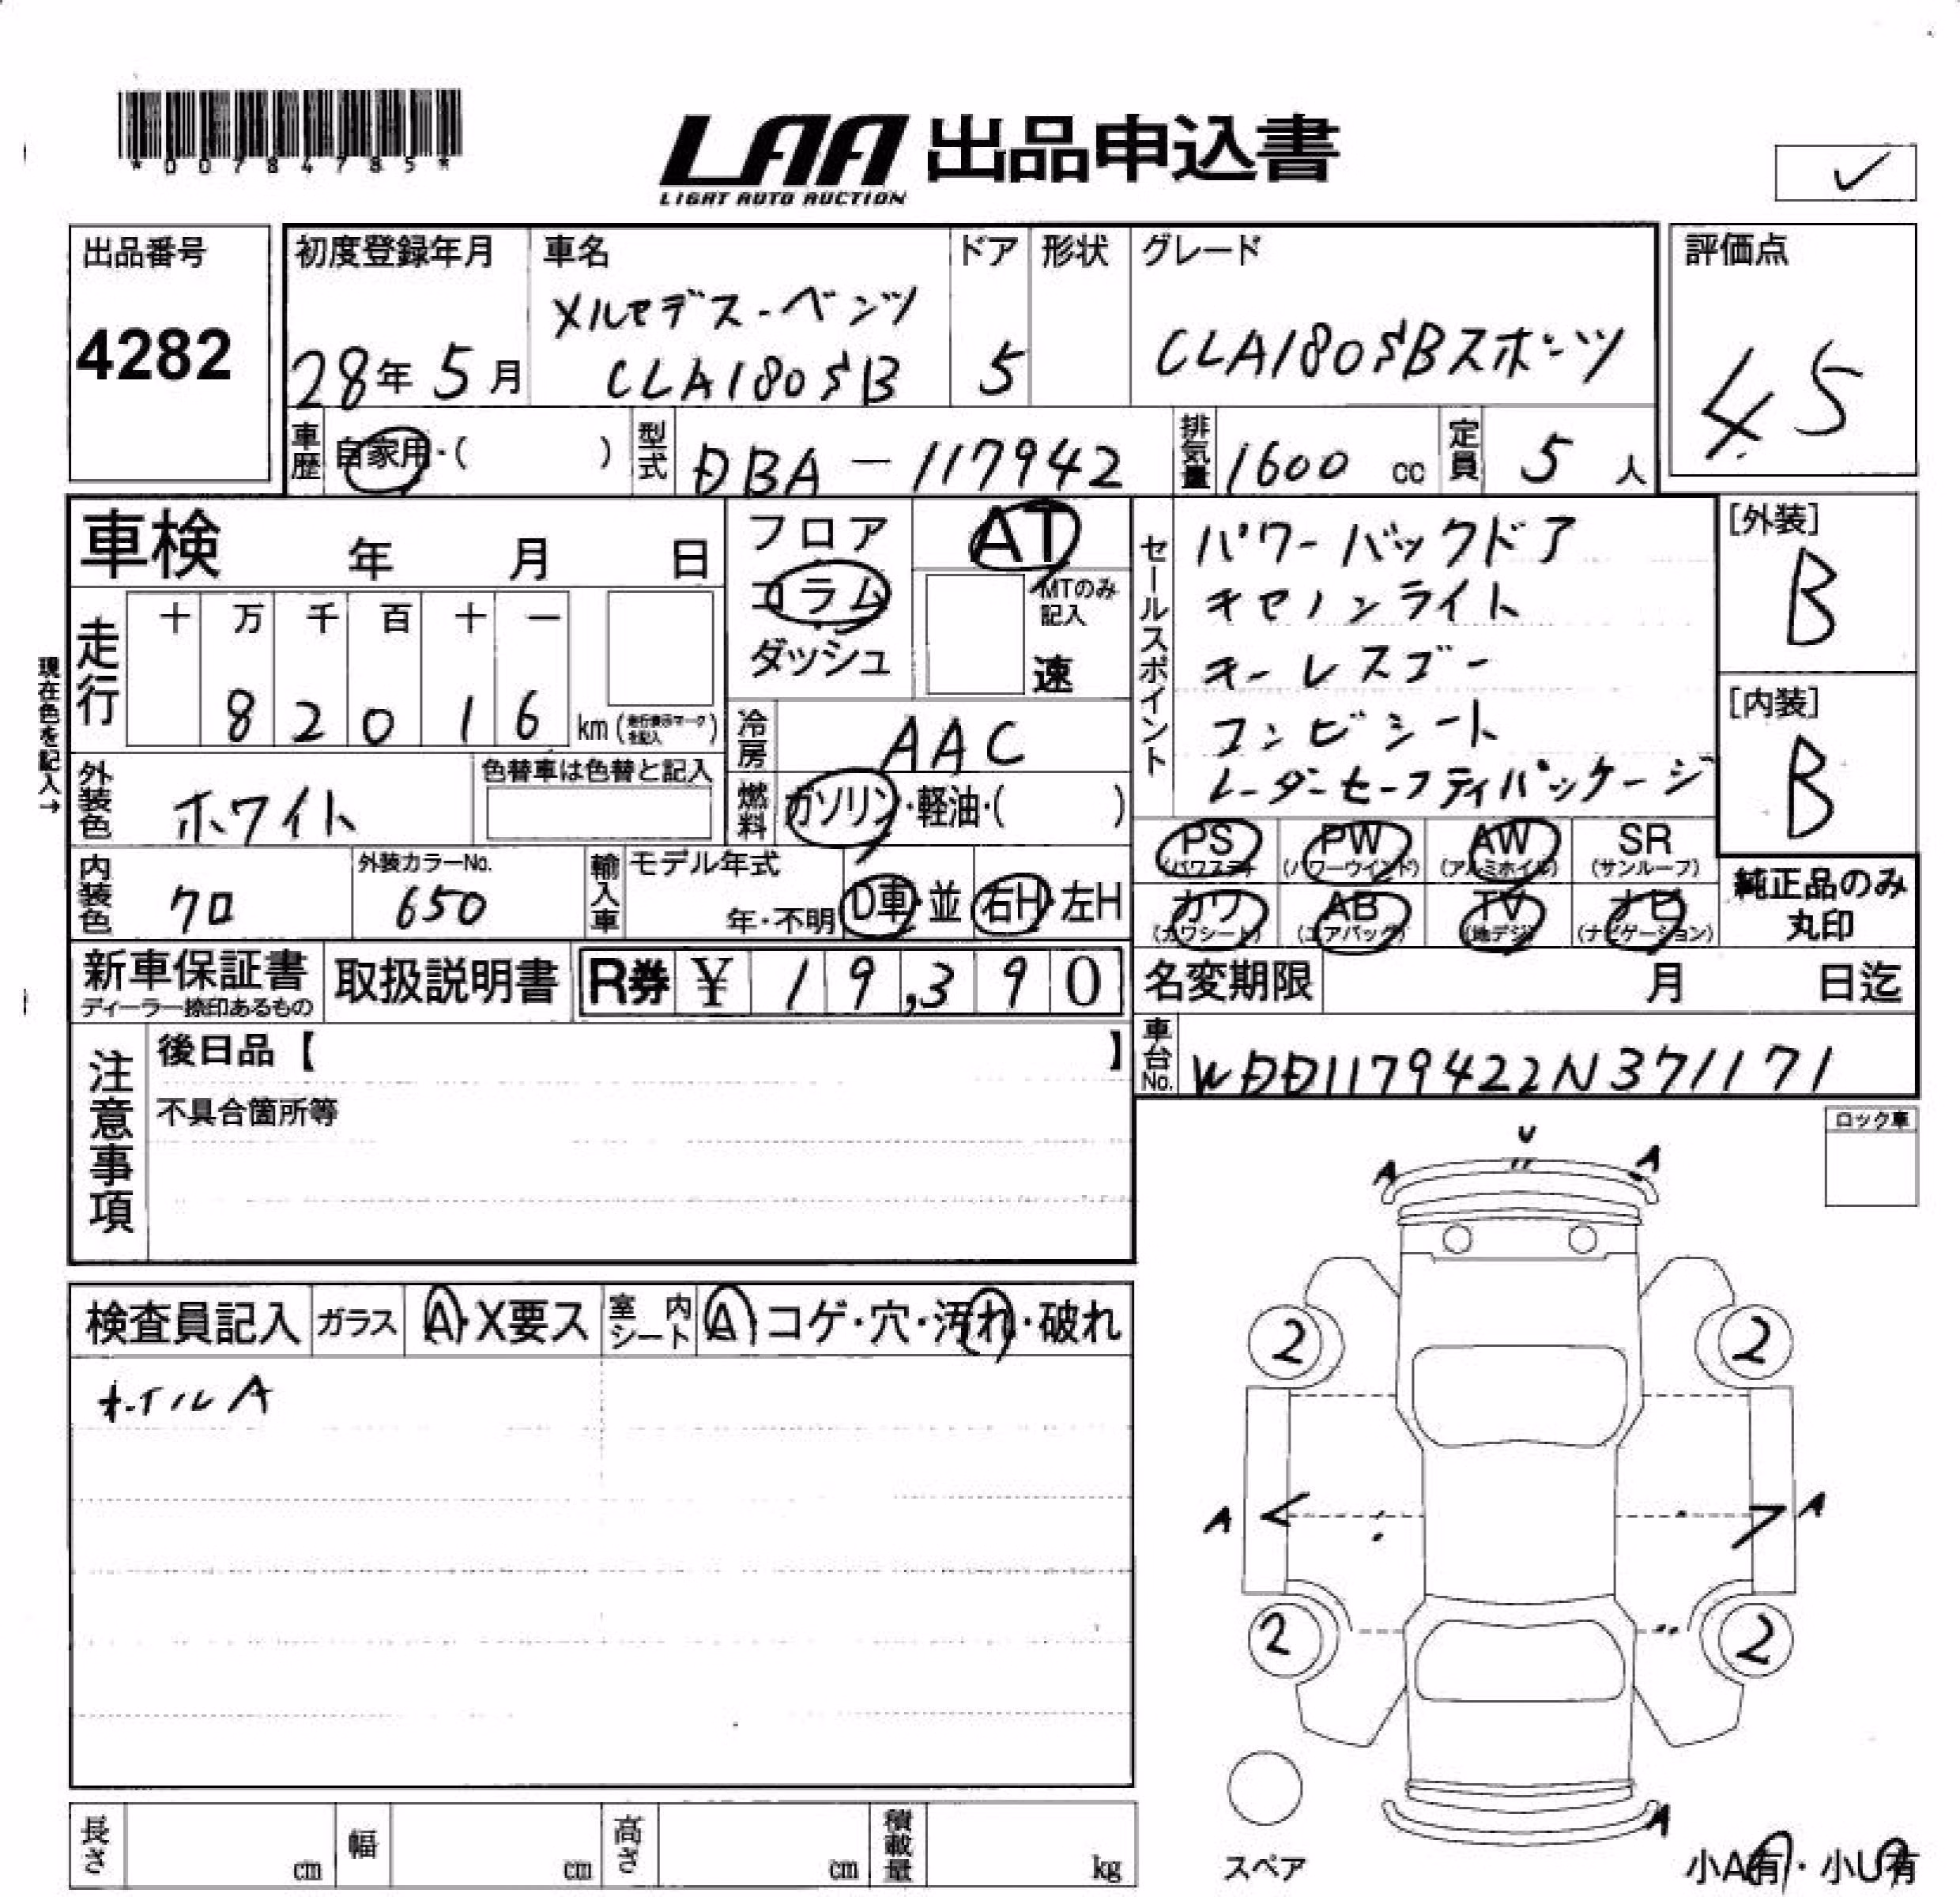 *00784785*
LAA 出品申込書
LIGHT AUTO AUCTION
✓
出品番号
4282
初度登録年月
28年 5月
車名
メルセデス-ベンツ
CLA180SB
ドア
5
形状
グレード
CLA180SBスポーツ
評価点
4.5
車歴
自家用・( )
型式
DBA-117942
排気量
1600 cc
定員
5 人
車検 年 月 日
現在色を記入→
走行
十 万 千 百 十 一
8 2 0 1 6
km (走行表示マークを記入)
フロア
コラム
ダッシュ
AT
MTのみ記入
速
セールスポイント
パワーバックドア
キセノンライト
キーレスゴー
コンビシート
レーダーセーフティパッケージ
[外装]
B
[内装]
B
冷房
AAC
外装色
ホワイト
色替車は色替と記入
燃料
ガソリン・軽油・( )
内装色
クロ
外装カラーNo.
650
輸入車
モデル年式
年・不明
D車・並
右H・左H
PS (パワステ)
PW (パワーウインド)
AW (アルミホイル)
SR (サンルーフ)
カワ (カワシート)
AB (エアバッグ)
TV (地デジ)
ナビ (ナビゲーション)
純正品のみ
丸印
新車保証書
ディーラー捺印あるもの
取扱説明書
R券 ¥ 19,390
名変期限 月 日迄
車台No.
WDD1179422N371171
注意事項
後日品【 】
不具合箇所等
ロック車
検査員記入
ガラス
A・X要ス
室内シート
A コゲ・穴・汚れ・破れ
ホイルA
U
A A
2 2
A A
2 2
A
スペア
小A有・小U有
長さ cm
幅 cm
高さ cm
積載量 kg